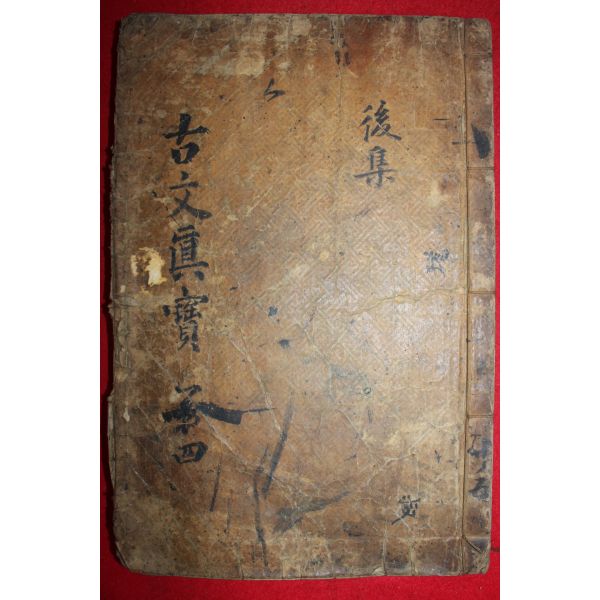 後集
古文眞寶
四